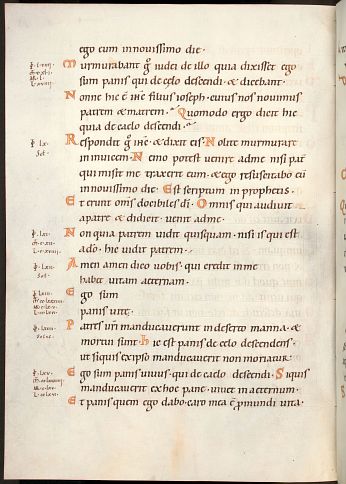 ego eum in novissimo die.
Murmurabant g̊ iudei de illo quia dixisset ego
sum panis qui de cęlo descendi. & dicebant.
Nonne hic ē ihc̄ filius ioseph. cuius nos novimus
patrem & matrem. Quomodo ergo dicit hic
quia de caelo descendi.
Respondit g̊ ihc̄ & dixit eis. Nolite murmurare
in invicem. Nemo potest venire adme nisi pat̄
qui misit me traxerit eum. & ego resuscitabo eū
in novissimo die. Est scriptum in prophetis.
Et erunt om̄s docibiles dī. Omnis qui audivit
apatre & didicit. venit adme.
Non quia patrem vidit quisquam. nisi is qui est
adō. hic vidit patrem.
Amen amen dico vobis. qui credit inme
habet vitam aeternam.
Ego sum
panis vitę.
Patres vr̄i manducaverunt in deserto manna. &
mortui sunt. Hic est panis de celo descendens.
ut siquis exipso manducaverit non moriatur.
Ego sum panis vivus. qui de caelo descendi. Siquis
manducaverit ex hoc pane. vivet in aeternum.
Et panis quem ego dabo. caro mea ē pro mundi vita.